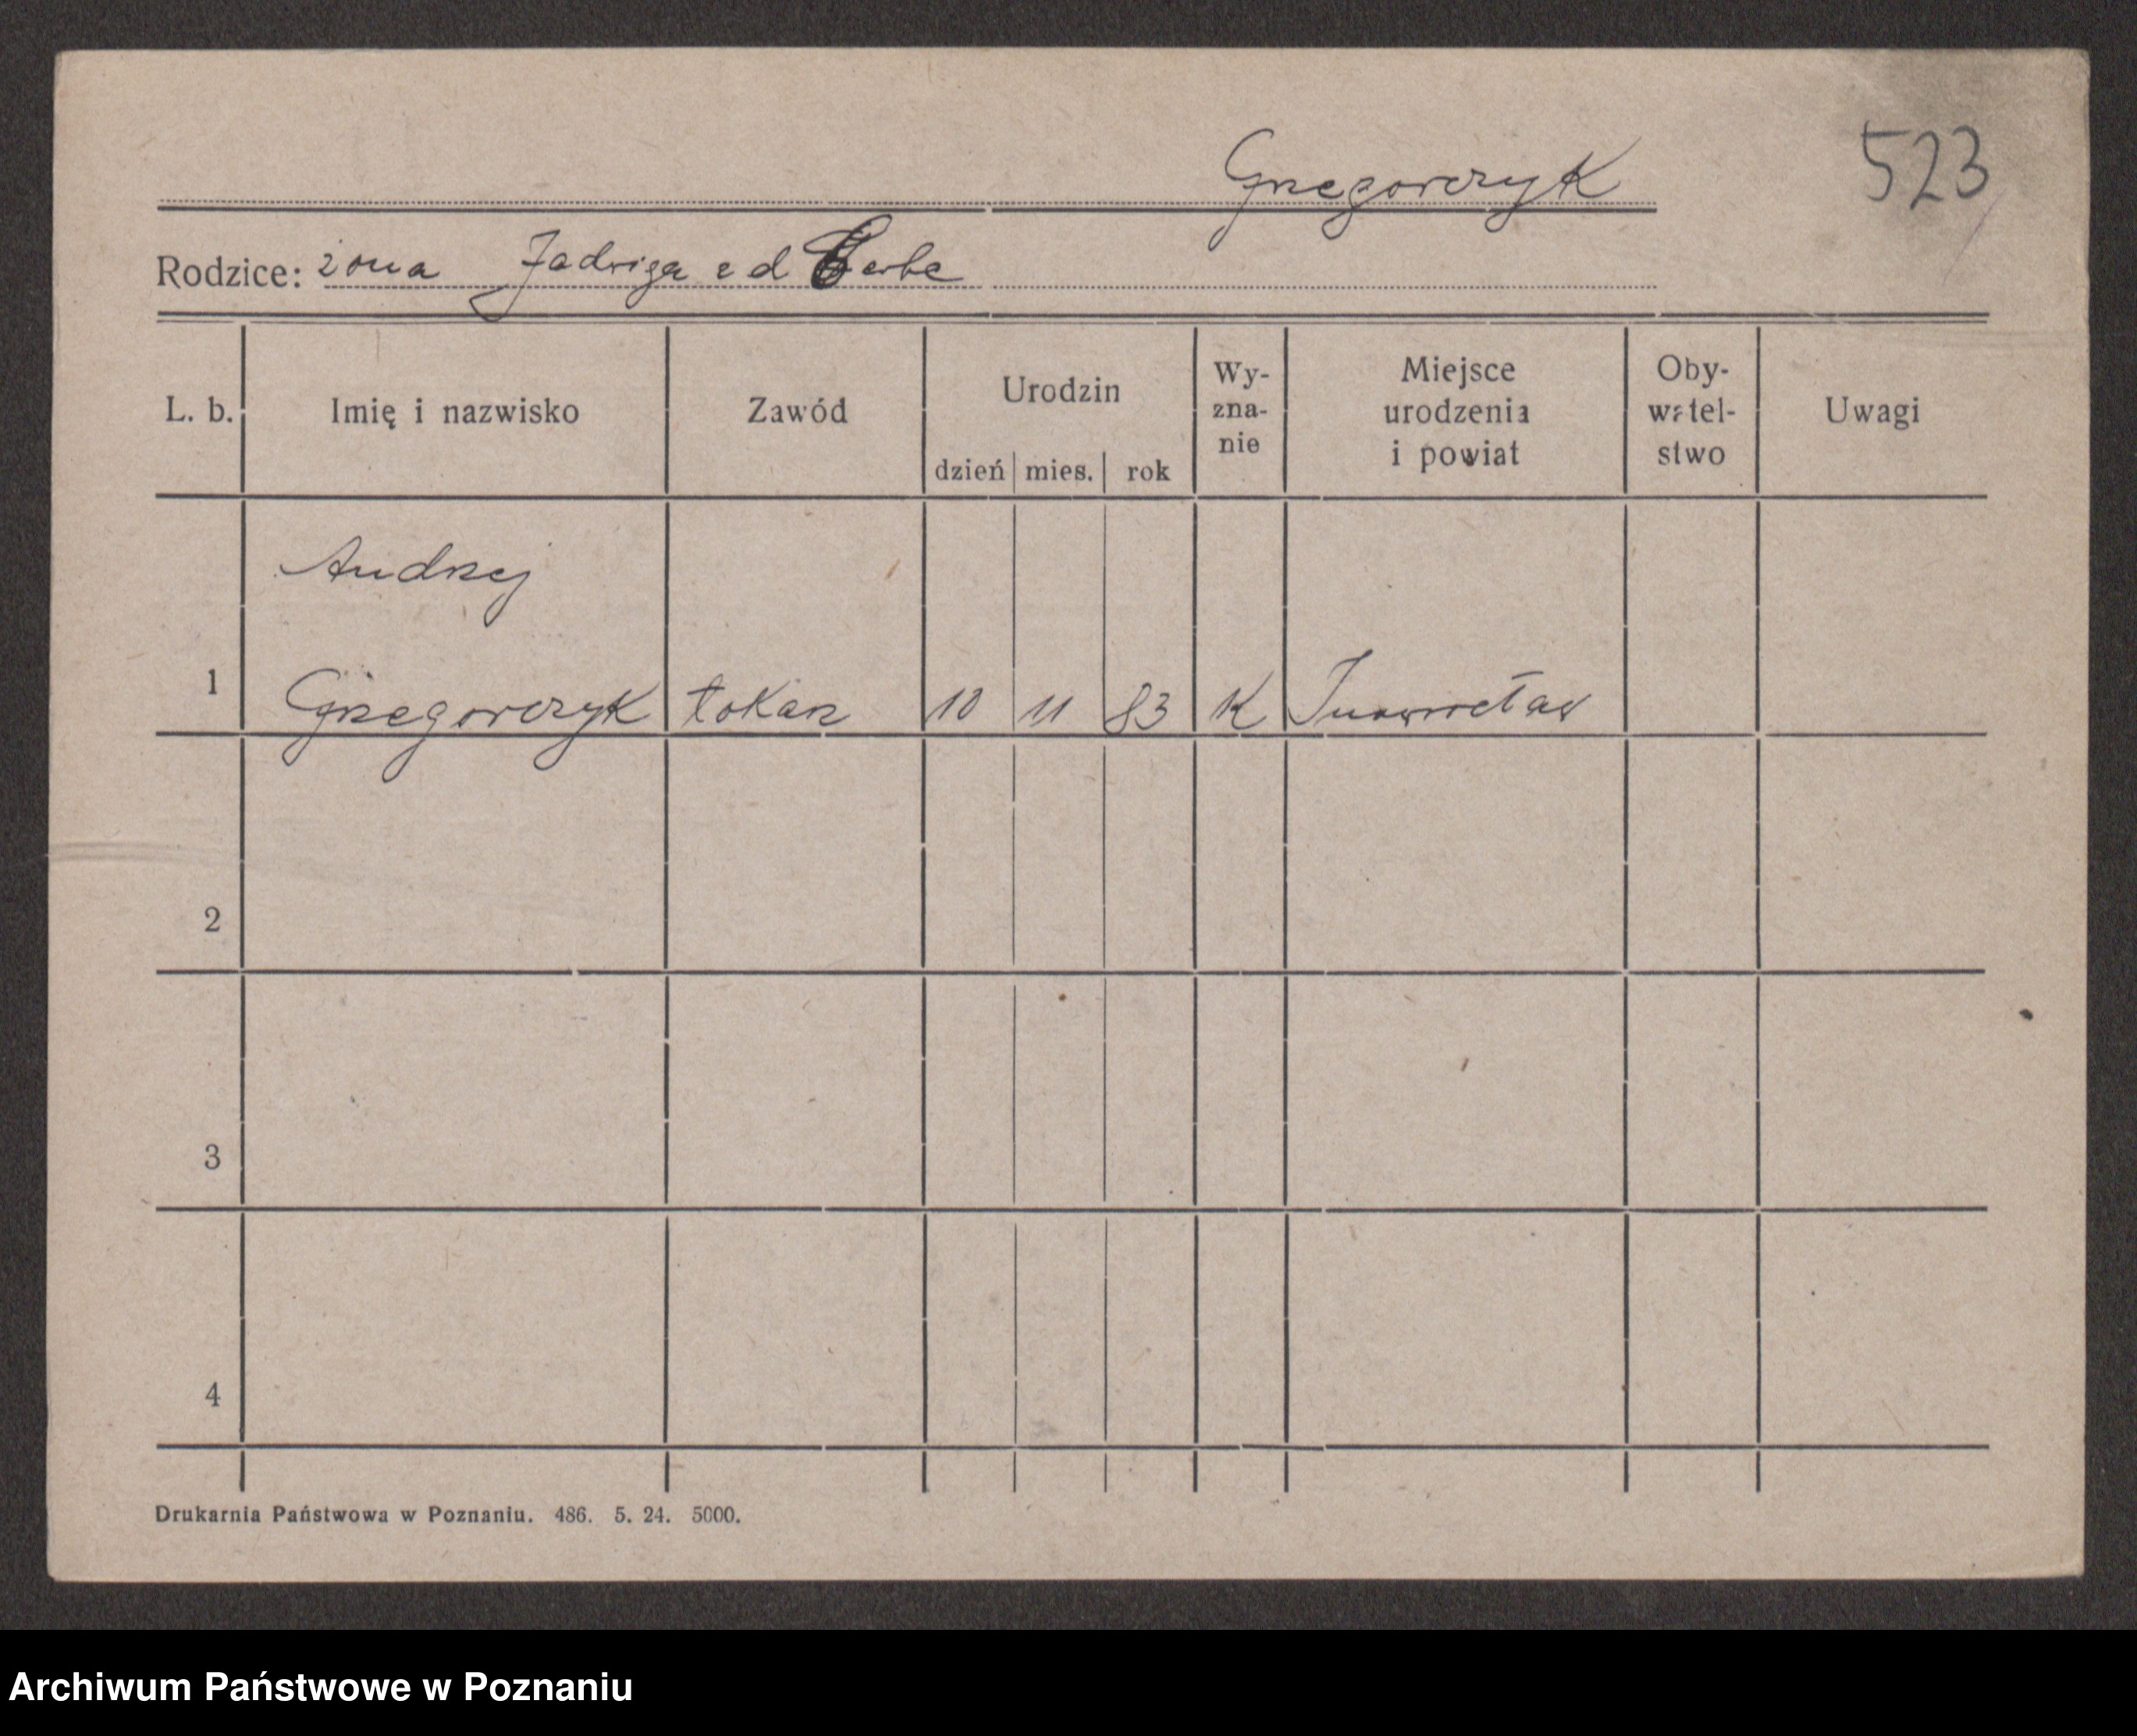 Grzegorczyk
523
Rodzice: żona Jadwiga zd
L. b.
Imię i nazwisko
Zawód
Urodzin
dzień mies. rok
Wy-
zna-
nie
Miejsce
urodzenia
i powiat
Oby-
watel-
stwo
Uwagi
Andrzej
1 Grzegorczyk tokarz 10 11 83 K Inowrocław
2
3
4
Drukarnia Państwowa w Poznaniu. 486. 5. 24. 5000.
Archiwum Państwowe w Poznaniu